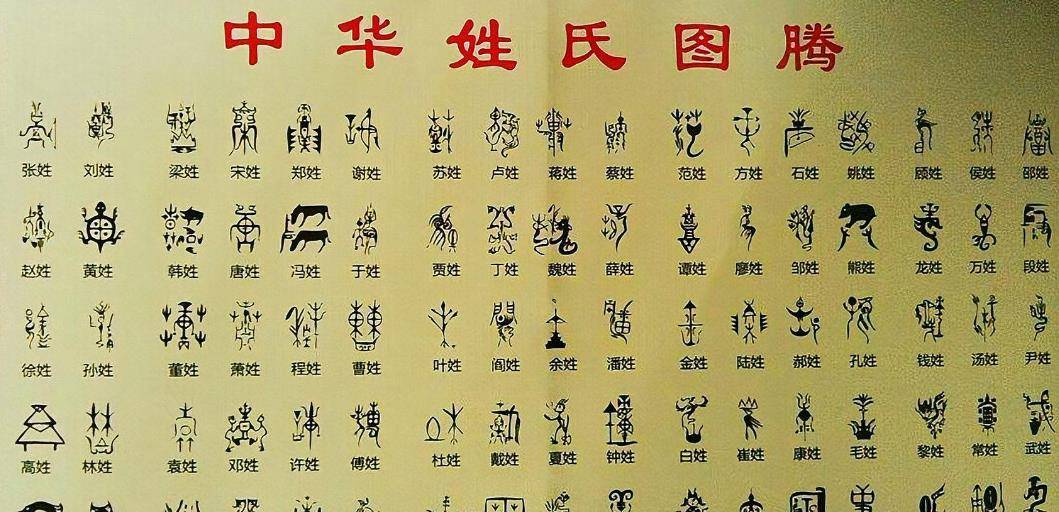 中华姓氏图腾
张姓 刘姓 梁姓 宋姓 郑姓 谢姓 苏姓 卢姓 蒋姓 蔡姓 范姓 方姓 石姓 姚姓 顾姓 侯姓 邵姓
赵姓 黄姓 韩姓 唐姓 冯姓 于姓 贾姓 丁姓 魏姓 薛姓 谭姓 廖姓 邹姓 熊姓 龙姓 万姓 段姓
徐姓 孙姓 董姓 萧姓 程姓 曹姓 叶姓 阎姓 余姓 潘姓 金姓 陆姓 郝姓 孔姓 钱姓 汤姓 尹姓
高姓 林姓 袁姓 邓姓 许姓 傅姓 杜姓 戴姓 夏姓 钟姓 白姓 崔姓 康姓 毛姓 黎姓 常姓 武姓